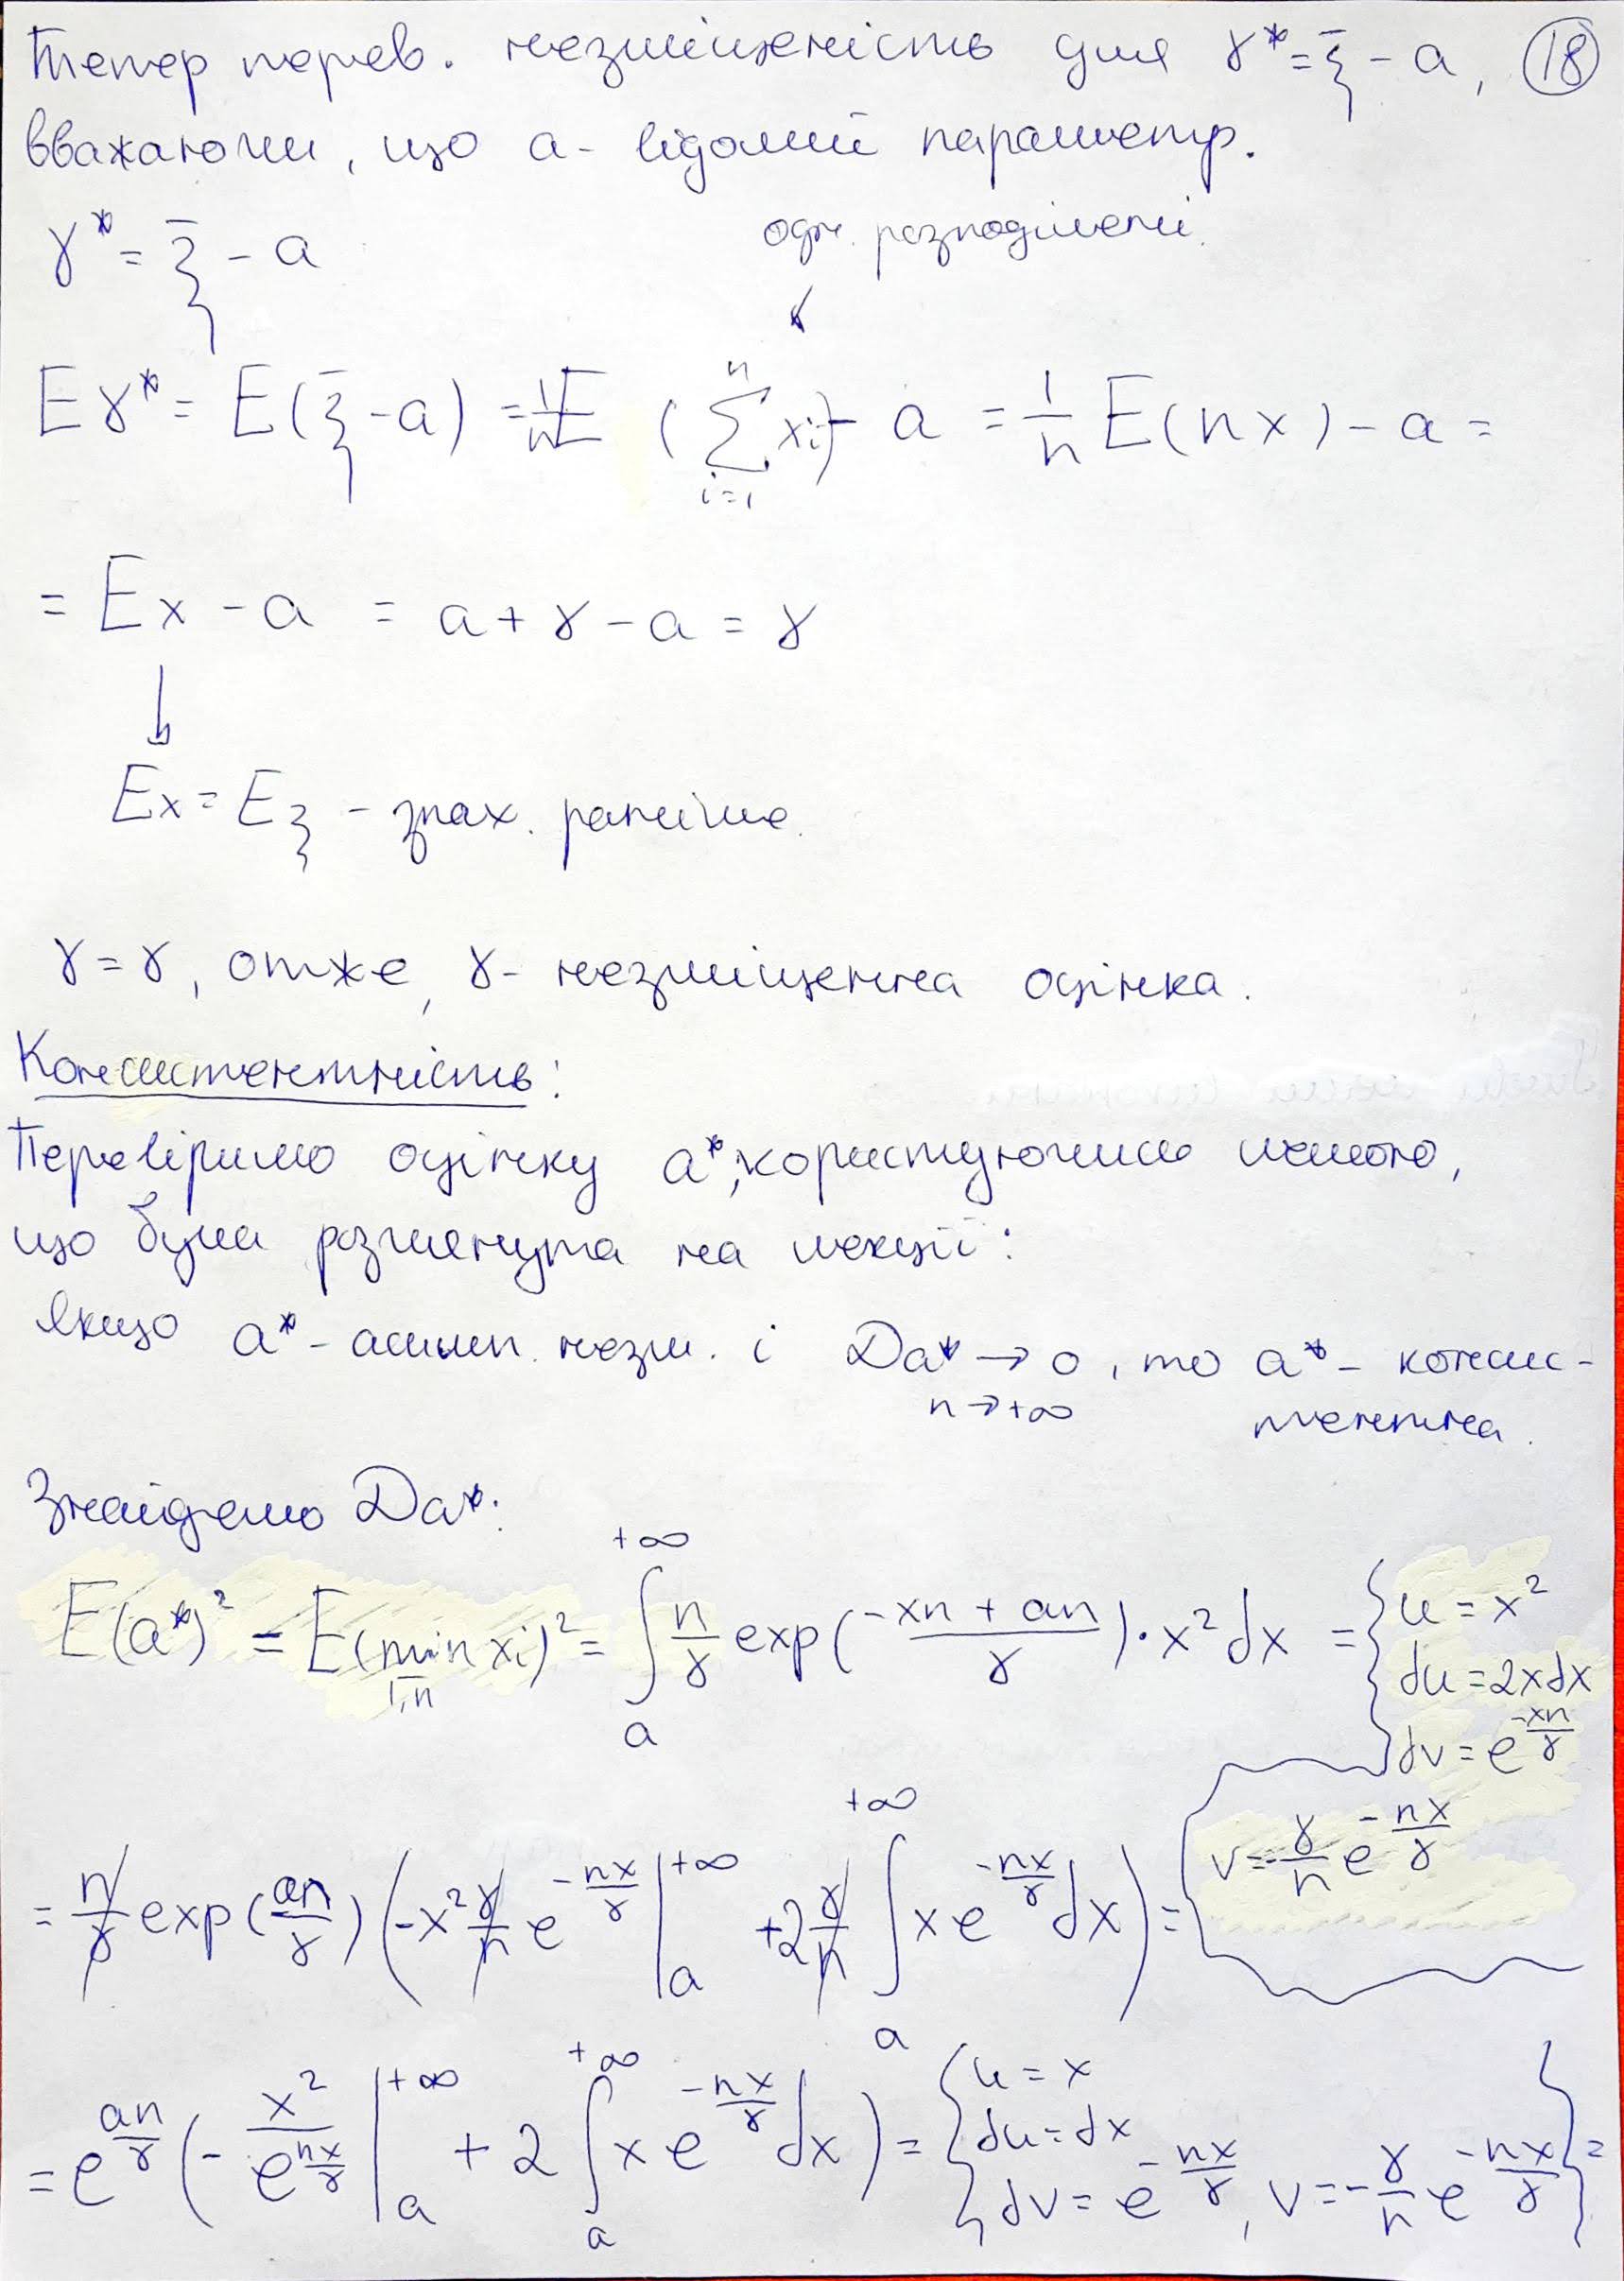 Тепер перев. незміщеність для γ* = ξ̄ - a, (18)
вважаючи, що a - відомий параметр.
γ* = ξ̄ - a
одн. розподілені.
Eγ* = E(ξ̄ - a) = 1/n E (∑_{i=1}^{n} xi) - a = 1/n E(nx) - a =
= Ex - a = a + γ - a = γ
Ex = Eξ - знах. раніше.
γ = γ, отже, γ - незміщенна оцінка.
Консистентність:
Перевіримо оцінку a*, користуючись лемою,
що була розглянута на лекції:
Якщо a* - асимп. незм. і Da* → 0, то a* - консис-
n → +∞
тентна.
Знайдемо Da*:
E(a*)² = E(min_{1,n} xi)² = ∫_a^{+∞} n/γ exp((-xn + an)/γ) · x² dx = { u = x²
du = 2xdx
dv = e^{-xn/γ}
v = -γ/n e^{-nx/γ}
= n/γ exp(an/γ) (-x² γ/n e^{-nx/γ} |_a^{+∞} + 2 γ/n ∫_a^{+∞} x e^{-nx/γ} dx) =
= e^{an/γ} (- x²/e^{nx/γ} |_a^{+∞} + 2 ∫_a^{+∞} x e^{-nx/γ} dx) = { u = x
du = dx
dv = e^{-nx/γ}, v = -γ/n e^{-nx/γ} } =